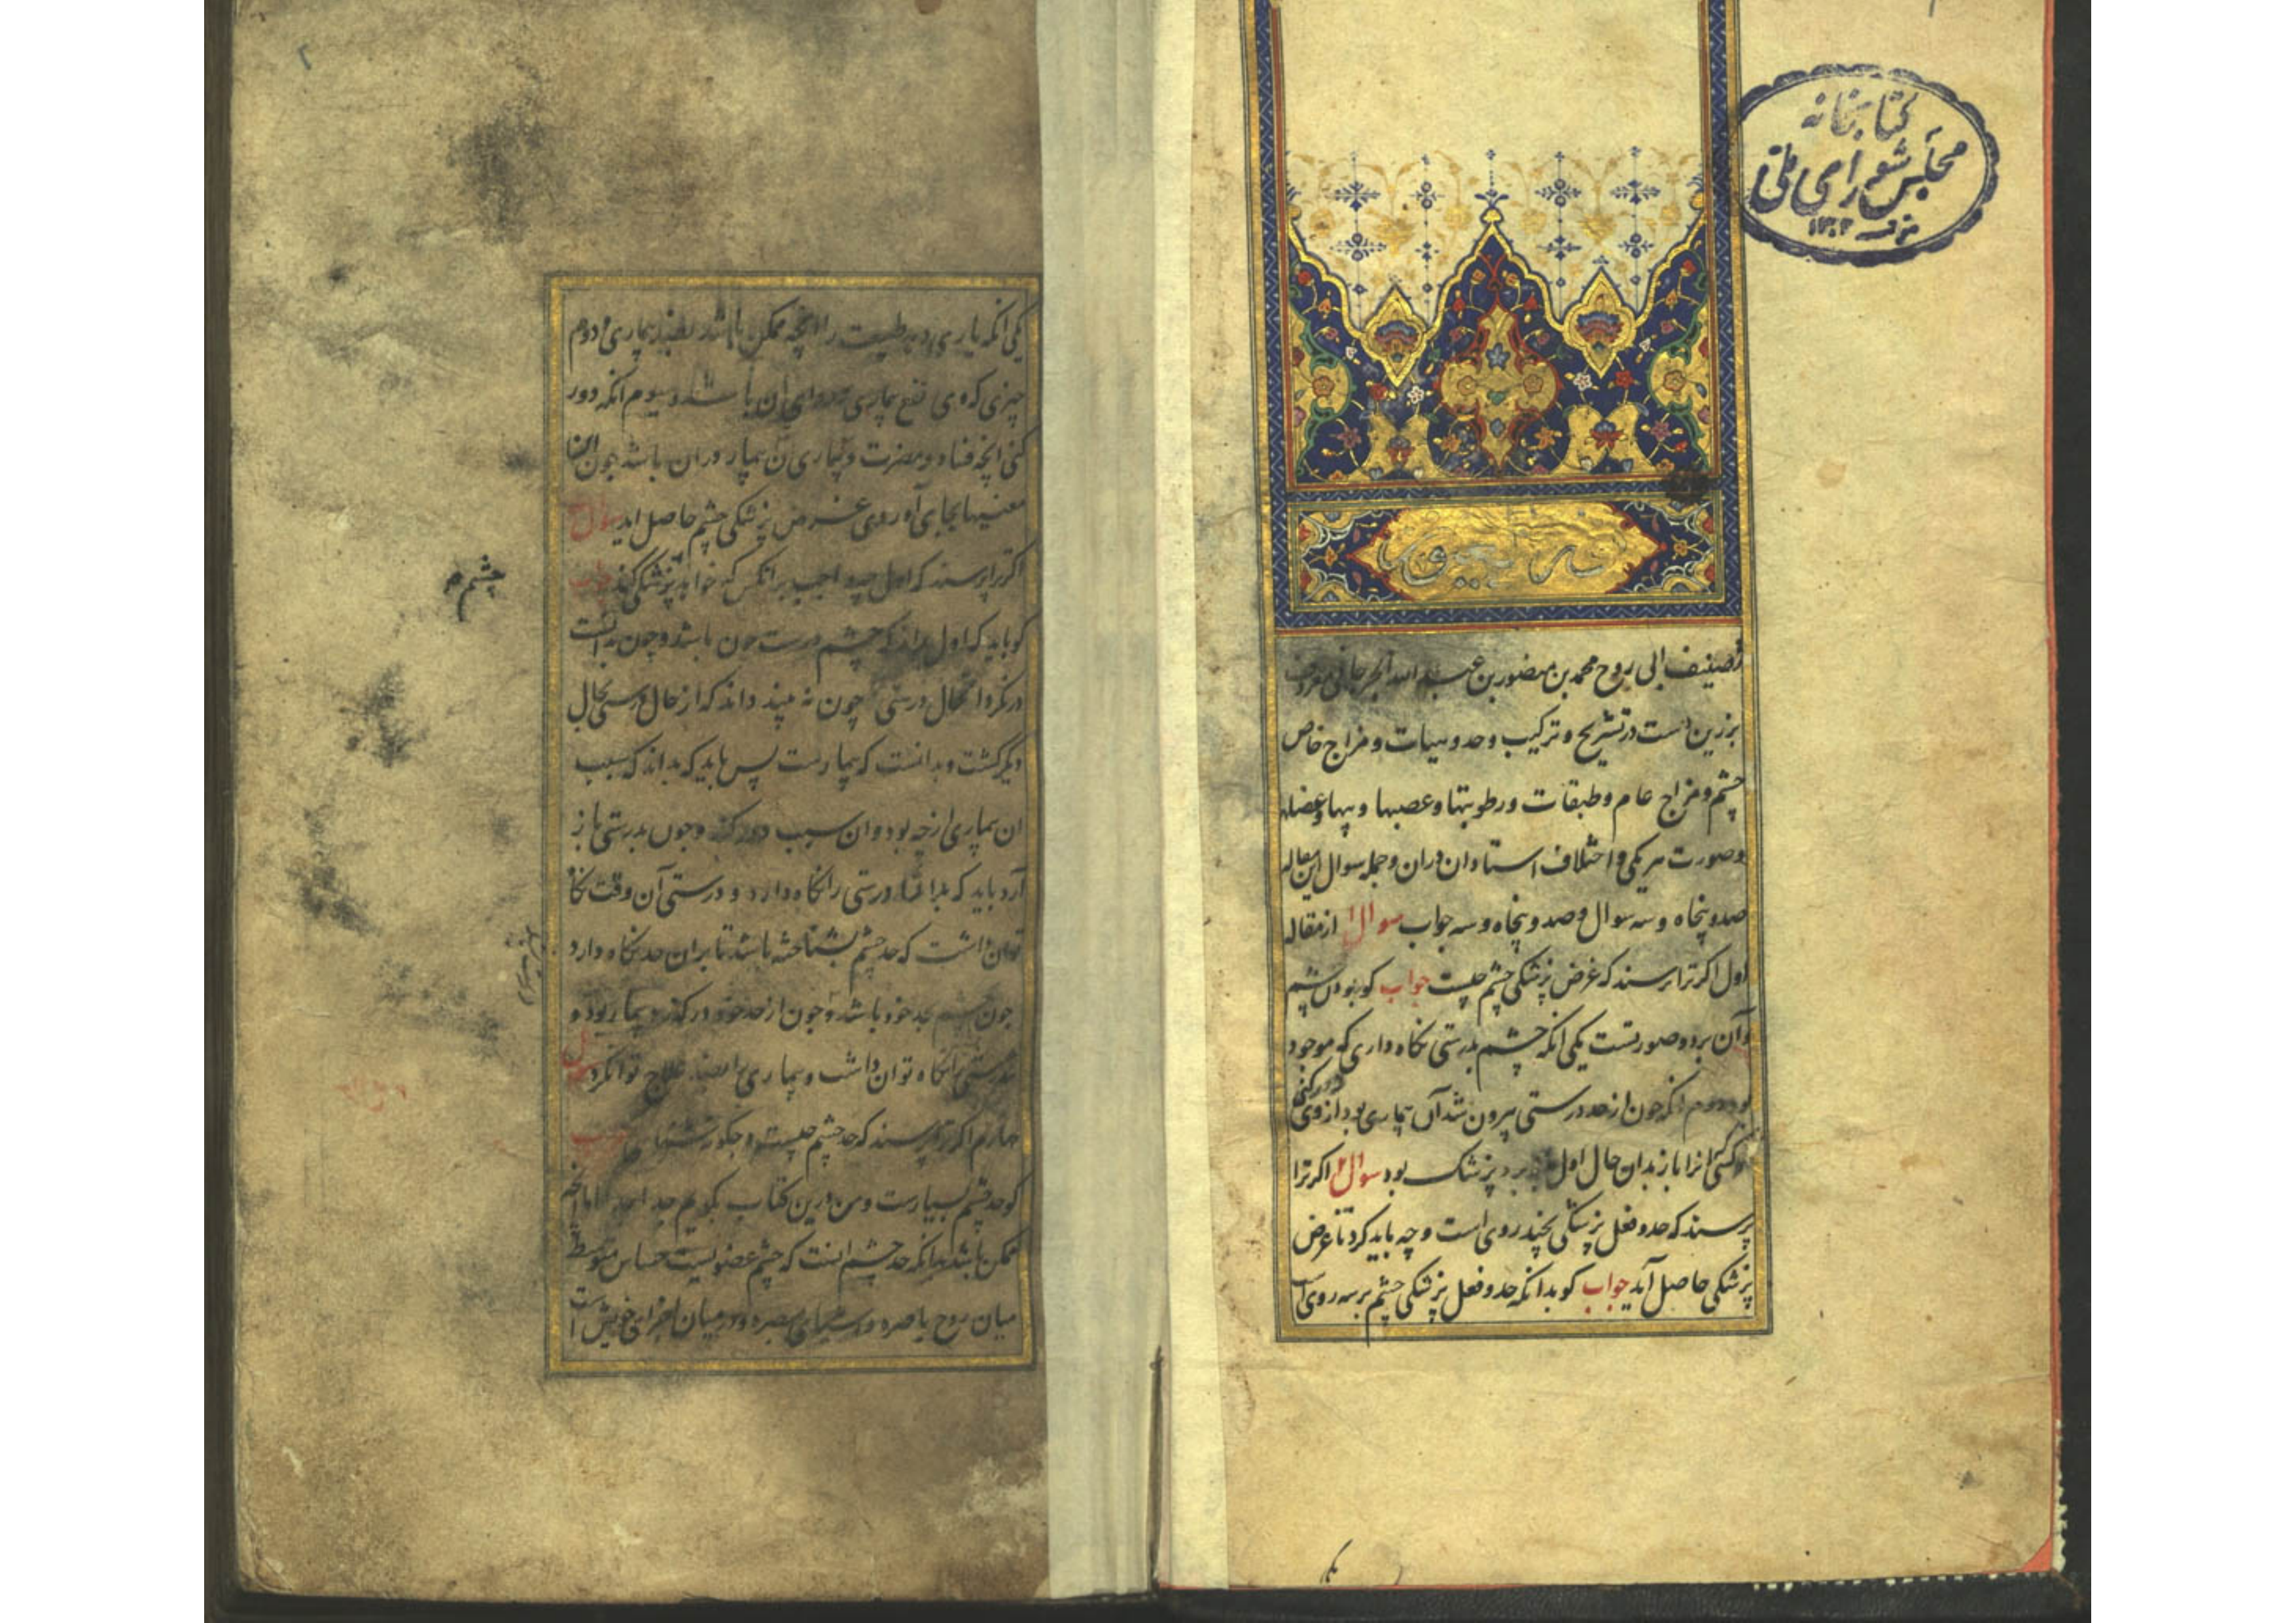 کتابخانه
مجلس شورای ملی
۱۳۰۲
تصنیف ابی روح محمد بن منصور بن عبد الله الجرجانی معروف
بزرین دست در تشریح و ترکیب و حد و هیات و مزاج خاص
چشم و مزاج عام و طبقات و رطوبتها و عصبها و پیها و عضله
و صورت هر یکی و اختلاف استادان دران و جمله سوال این مقاله
صد و پنجاه و سه سوال و صد و پنجاه و سه جواب سوال از مقاله
اول اکر ترا پرسند که غرض پزشکی چشم چیست جواب کو
و آن بر دو صورتست یکی انکه چشم بدرستی نکاه داری که موجود
بود دوم انکه چون از حد درستی بیرون شد آن بیماری بود از وی
دور کنی
انرا باز بدان حال اول پزشک بود سوال اکر ترا
پرسند که حد و فعل پزشکی بچند روی است و چه باید کرد تا غرض
پزشکی حاصل آید جواب کو بدانکه حد و فعل پزشکی چشم بر سه روی است
یکی انکه یاری دهی طبیعت را انچه ممکن باشد بیماری و دوم
چیزی که وی نفع بیماری باشد و سیوم انکه دور
کنی انچه فساد و مضرت و بیماری آن بیمار دران باشد چون این
معنیها بجای آوردی غرض پزشکی چشم حاصل اید سوال
اکر ترا پرسند که اول چه واجب بر انکس که خواهد پزشکی کند جواب
چشم
کو باید که اول بداند که چشم درست چون باشد و چون بدانست
درنکرد اکر حال درستی چون نه بیند داند که از حال درستی بحال
دیکر کشت و بدانست که بیمارست پس باید که بداند که سبب
ان بیماری از چه بود و ان سبب دور کند و چون بدرستی باز
آرد باید که درستی را نکاه دارد و درستی آن وقت نکاه
توان داشت که حد چشم بشناخته باشد تا بران حد نکاه دارد
چون چشم بحد خود باشد و چون از حد خود درکذرد بیمار بود و
تندرستی را نکاه توان داشت و بیماری را علاج توان کرد سوال
چهارم اکر ترا پرسند که حد چشم چیست و چکونه جواب
کو حد چشم بسیارست و من درین کتاب بکویم جدا جدا اما انچه
ممکن باشد بدانکه حد چشم اینست که چشم عضویست حساس متوسط
میان روح باصره و میان اجزای خویش است